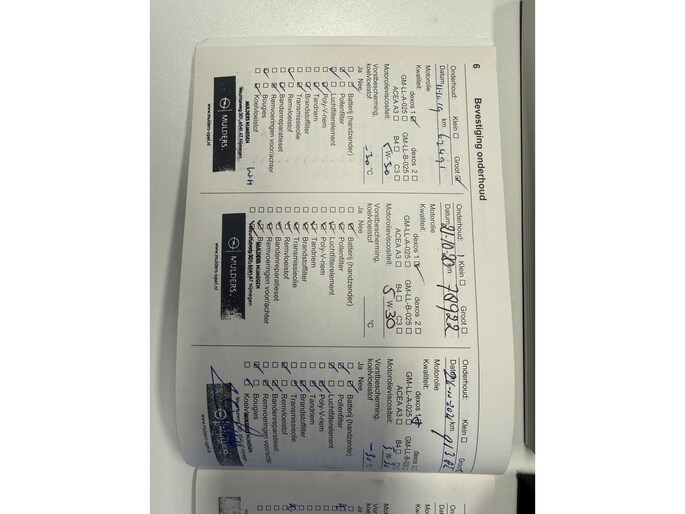 6
Bevestiging onderhoud
Onderhoud: Klein Groot
Datum: km: 62491
Motorolie
Kwaliteit: dexos 1 dexos 2
GM-LL-A-025 GM-LL-B-025
ACEA A3 B4 C3
Motorolieviscositeit: 5 W-30
Vorstbescherming,
koelvloeistof: -30 °C
Ja Nee
Batterij (handzender)
Pollenfilter
Luchtfilterelement
Poly-V-riem
Tandriem
Brandstoffilter
Transmissieolie
Remvloeistof
Bandenreparatieset
Remvoeringen voor/achter
Bougies
Koelvloeistof
MULDERS NIJMEGEN
MULDERS.
www.mulders-opel.nl
Onderhoud: Klein Groot
Datum: km: 78922
Motorolie
Kwaliteit: dexos 1 dexos 2
GM-LL-A-025 GM-LL-B-025
ACEA A3 B4 C3
Motorolieviscositeit: 5 W-30
Vorstbescherming,
koelvloeistof: °C
Ja Nee
Batterij (handzender)
Pollenfilter
Luchtfilterelement
Poly-V-riem
Tandriem
Brandstoffilter
Transmissieolie
Remvloeistof
Bandenreparatieset
Remvoeringen voor/achter
Bougies
MULDERS NIJMEGEN
MULDERS.
www.mulders-opel.nl
Onderhoud: Klein
km
Motorolie
Kwaliteit: dexos 1
GM-LL-A-025 GM-LL-B-025
ACEA A3 B4
Motorolieviscositeit: 5 W-30
Vorstbescherming,
koelvloeistof: -30 °C
Ja Nee
Batterij (handzender)
Pollenfilter
Luchtfilterelement
Poly-V-riem
Tandriem
Brandstoffilter
Transmissieolie
Remvloeistof
Bandenreparatieset
Remvoeringen voor/achter
Bougies